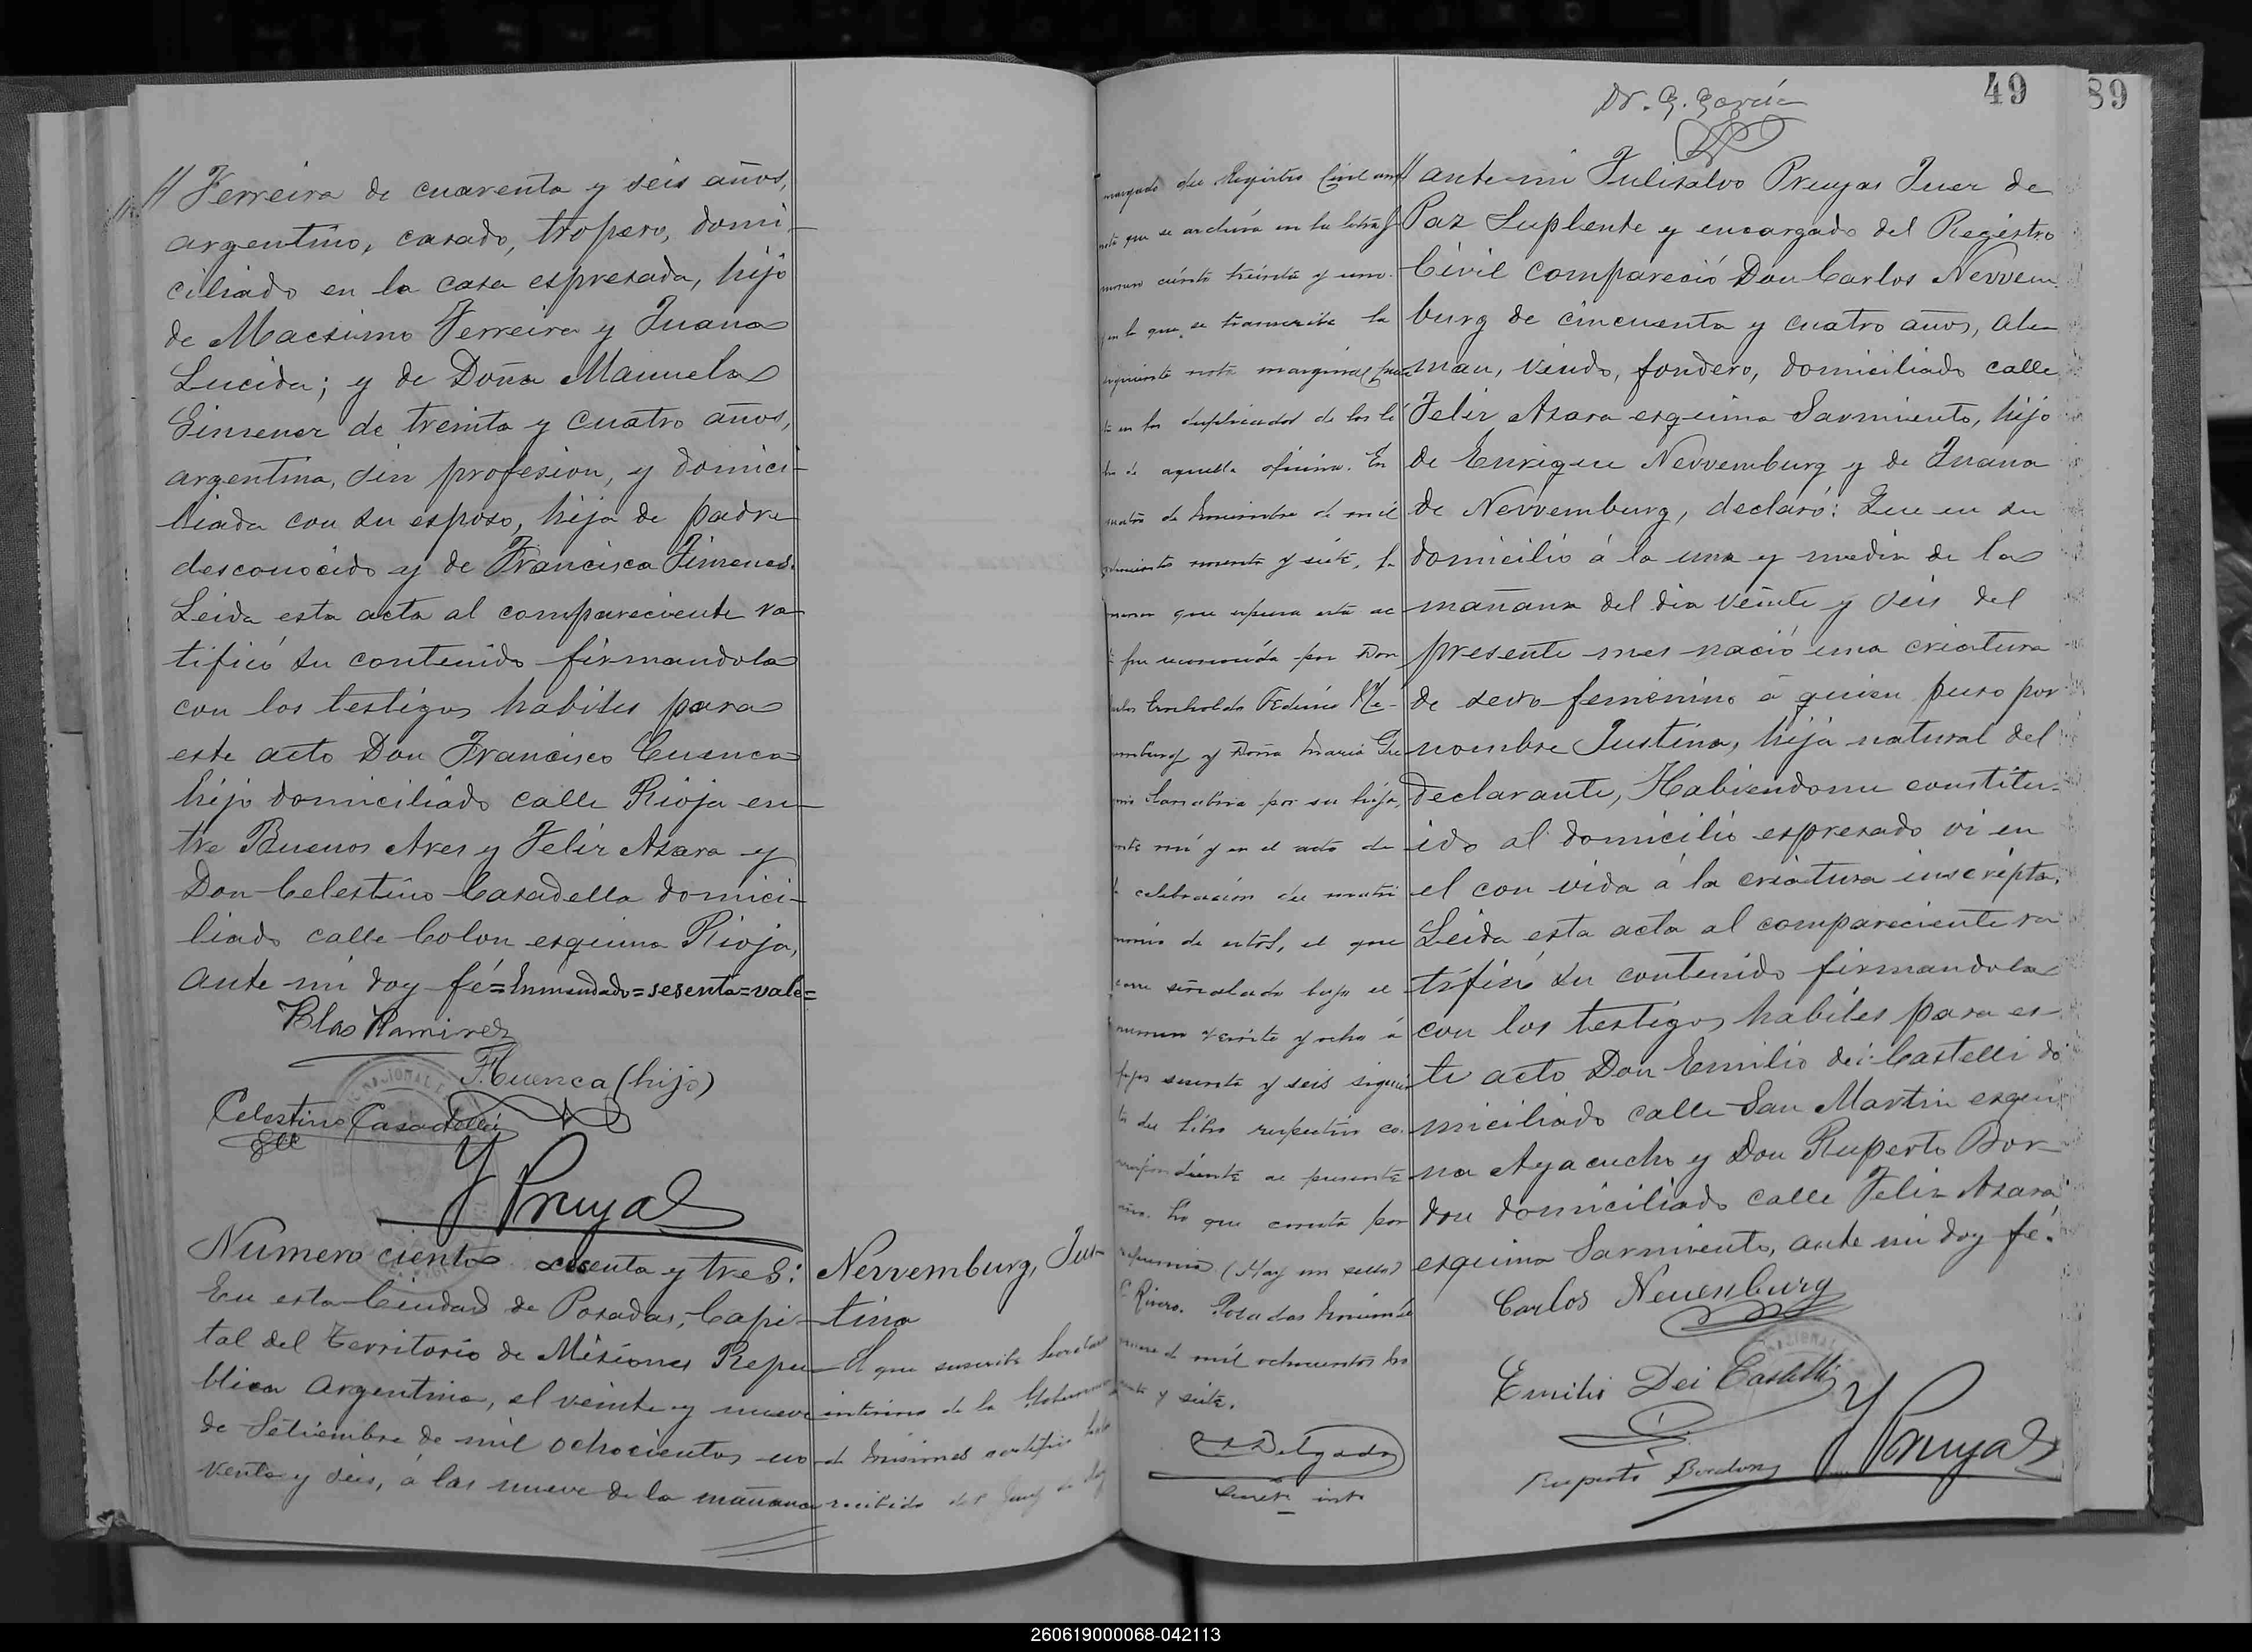 // Ferreira de cuarenta y seis años,
argentino, casado, tropero, domi-
ciliado en la casa espresada, hijo
de Macsimo Ferreira y Juana
Lucida; y de Doña Manuela
Gimenez de treinta y cuatro años,
argentina, sin profesion, y domici-
liada con su esposo, hija de padre
desconocido y de Francisca Jimenes.
Leida esta acta al compareciente ra-
tificó su contenido firmandola
con los testigos habiles para
este acto Don Francisco Cuenca
hijo domiciliado calle Rioja en-
tre Buenos Ayres y Felix Azara y
Don Celestino Casadella domici-
liado calle Colon esquina Rioja,
ante mi doy fé=Enmendado=sesenta=vale=
Blas Ramirez
F. Cuenca (hijo)
Celestino Casadellei
Y Pruyas
Numero ciento sesenta y tres:
En esta Ciudad de Posadas, Capi-
tal del Territorio de Misiones Repu-
blica Argentina, el veinte y nueve
de Setiembre de mil ochocientos no-
venta y seis, á las nueve de la mañana
Nervemburg, Jus-
tina
El que suscribe Secretario
interino de la Gobernacion
de Misiones certifica haber
recibido del Juez de Paz
encargado del Registro Civil una
nota que se archiva en la letra J
numero ciento treinta y uno
en la que se transcribe la
siguiente nota marginal puesta
en los duplicados de los li-
bros de aquella oficina. En
cuatro de Noviembre de mil
ochocientos noventa y siete, la
menor que espresa esta ac-
ta fue reconocida por Don
Carlos Ernholdo Federico Ne-
vemburg y Doña Maria
por su hija,
ante mi y en el acto de
la celebracion del matri-
monio de estos, el que
corre señalado bajo el
numero veinte y ocho á
fojas sesenta y seis siguien-
te del libro respectivo co-
rrespondiente al presente
año. Lo que consta por
(Hay un sello)
E Rivero. Posadas Noviembre
nueve de mil ochocientos no-
venta y siete.
E Delgado
Secret° int°
Dr. G. García
49
89
// ante mi Julisalvo Pruyas Juez de
Paz Suplente y encargado del Registro
Civil compareció Don Carlos Nervem-
burg de cincuenta y cuatro años, ale-
man, viudo, fondero, domiciliado calle
Felix Azara esquina Sarmiento, hijo
de Enrique Nervemburg y de Juana
de Nervemburg, declaró: Que en su
domicilio á la una y media de la
mañana del dia veinte y seis del
presente mes nació una criatura
de sexo femenino á quien puso por
nombre Justina, hija natural del
declarante, Habiendome constitu-
ido al domicilio espresado vi en
el con vida á la criatura inscripta.
Leida esta acta al compareciente ra-
tificó su contenido firmandola
con los testigos habiles para es-
te acto Don Emilio dei Castelli do-
miciliado calle San Martin esqui-
na Ayacucho y Don Ruperto Bor-
don domiciliado calle Felix Azara
esquina Sarmiento, ante mi doy fé.
Carlos Neuenburg
Emilio Dei Castelli
Y Pruyas
Ruperto Bordon
260619000068-042113